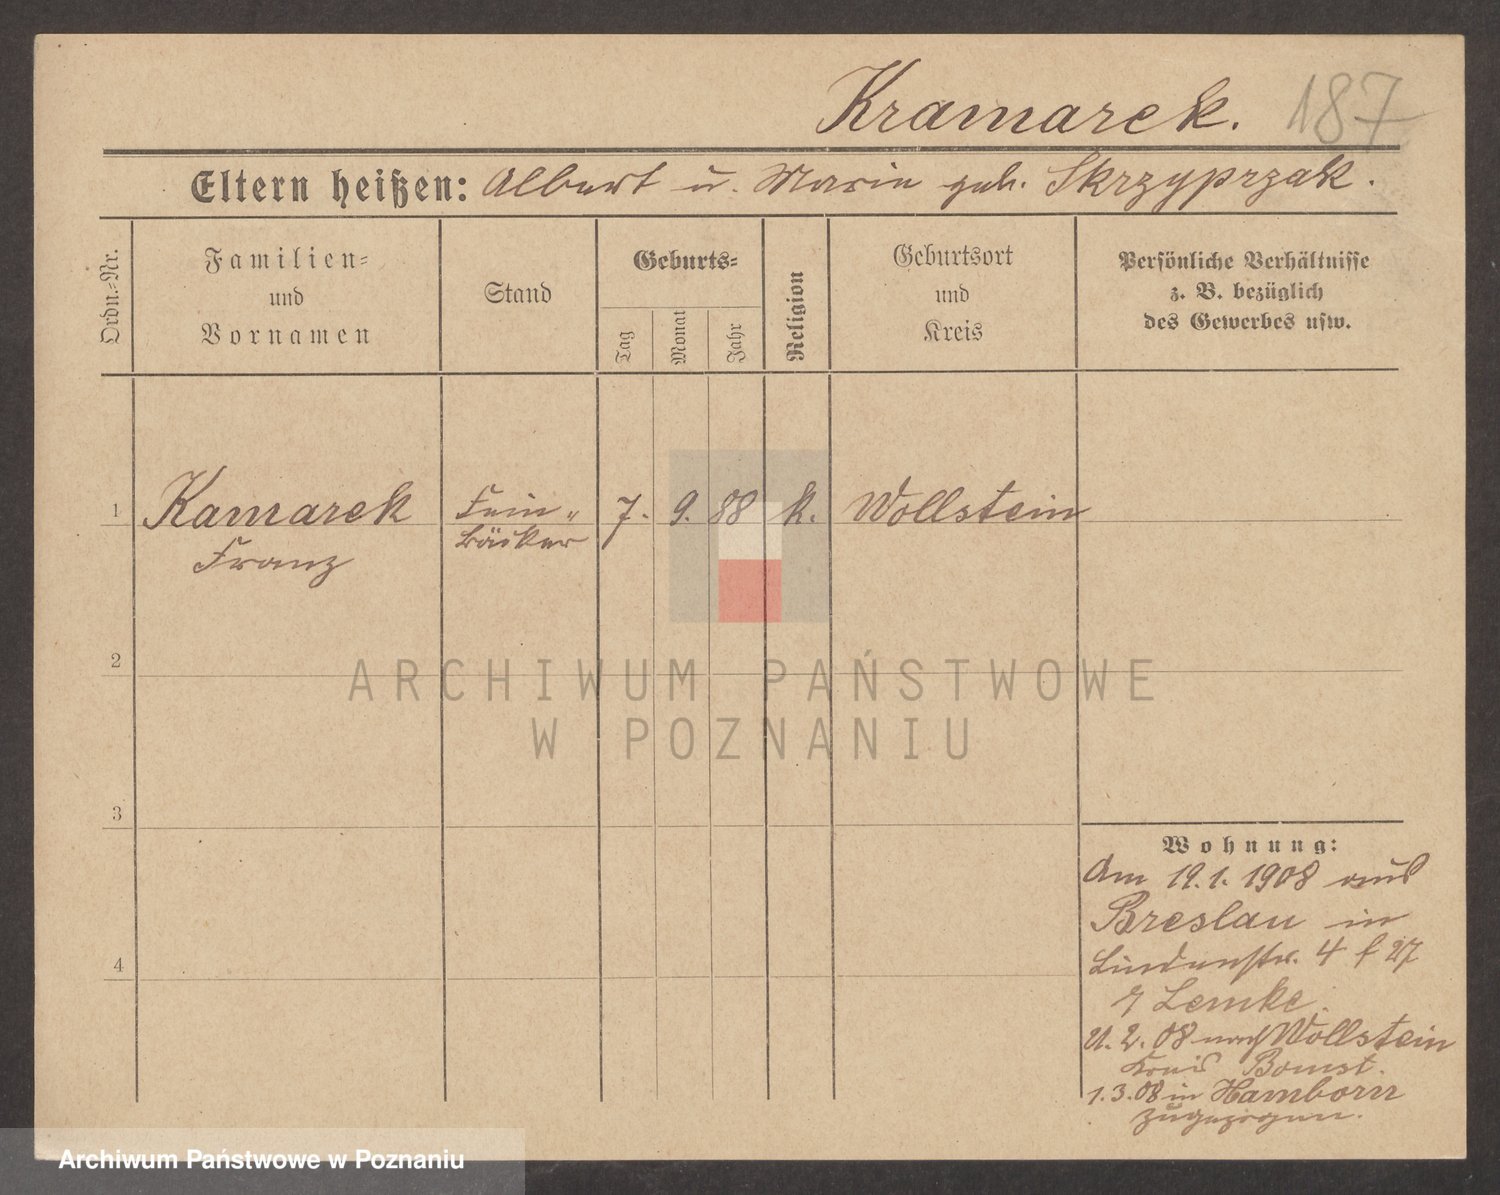 Kramarek. 187
Eltern heißen: Albert u. Marie geb. Skrzyprzak.
Ordn.-Nr.
Familien-
und
Vornamen
Stand
Geburts-
Tag
Monat
Jahr
Religion
Geburtsort
und
Kreis
Persönliche Verhältnisse
z. B. bezüglich
des Gewerbes usw.
1 Kamarek Fein- 7. 9. 88 k. Wollstein
Franz bäcker
2
ARCHIWUM PAŃSTWOWE
W POZNANIU
3
Wohnung:
Am 19.1.1908 aus
Breslau in
Lindenstr. 4 f 27
4
Lemke.
2.08 nach Wollstein
Kreis Bomst.
1.3.08 in Hamborn
zugezogen.
Archiwum Państwowe w Poznaniu